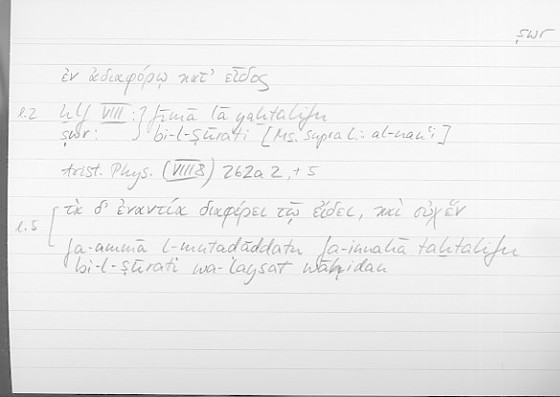 ṣwr
ἐν ἀδιαφόρῳ κατ' εἶδος
l.2 ḫlf VIII : } fīmā lā yaḫtalifu
ṣwr : } bi-l-ṣūrati [Ms. supra l.: al-nauʿi]
Arist. Phys. (VIII 8) 262a2, +5
l.5 τὰ δ' ἐναντία διαφέρει τῷ εἴδει, καὶ οὐχ ἕν
fa-ammā l-mutaḍāddatu fa-innahā taḫtalifu
bi-l-ṣūrati wa-laysat wāḥidan